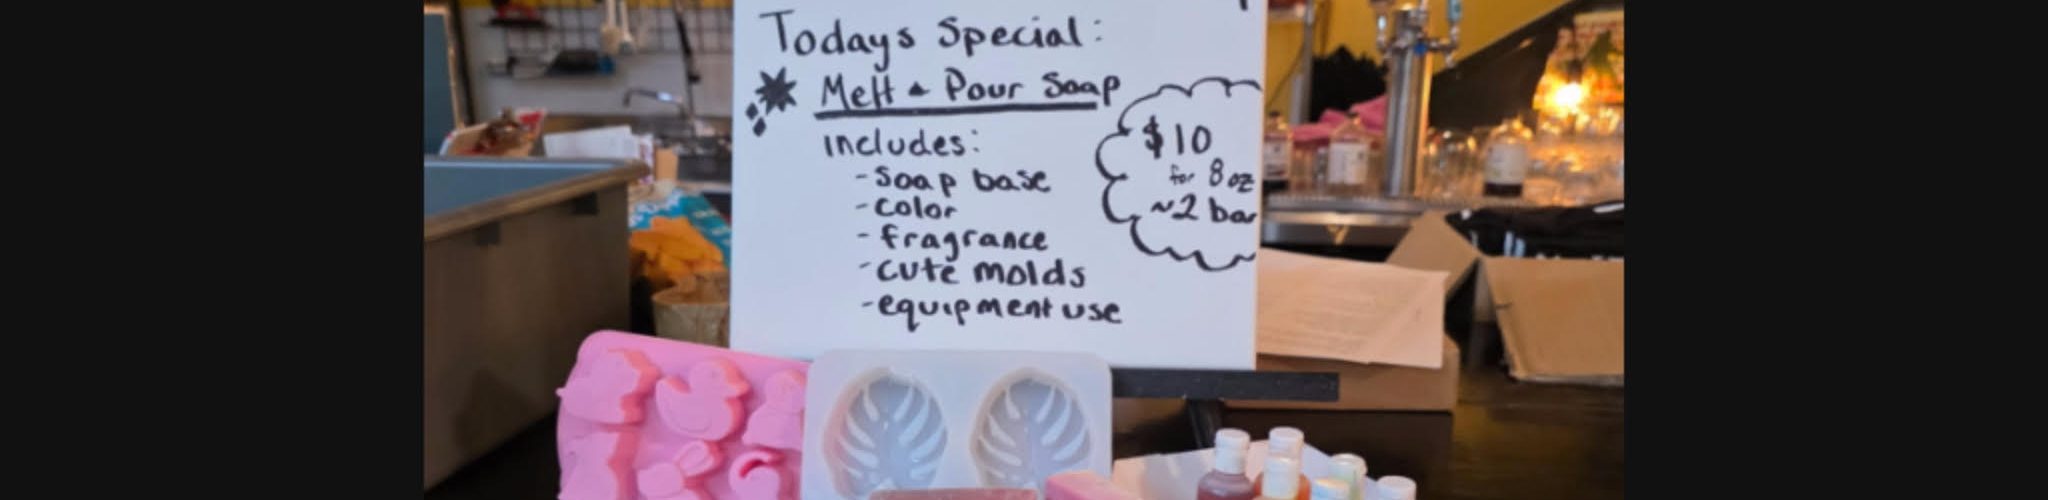 Todays Special:
Melt & Pour Soap
includes:
-soap base
-color
-fragrance
-cute molds
-equipment use
$10
for 8 oz
~2 bar